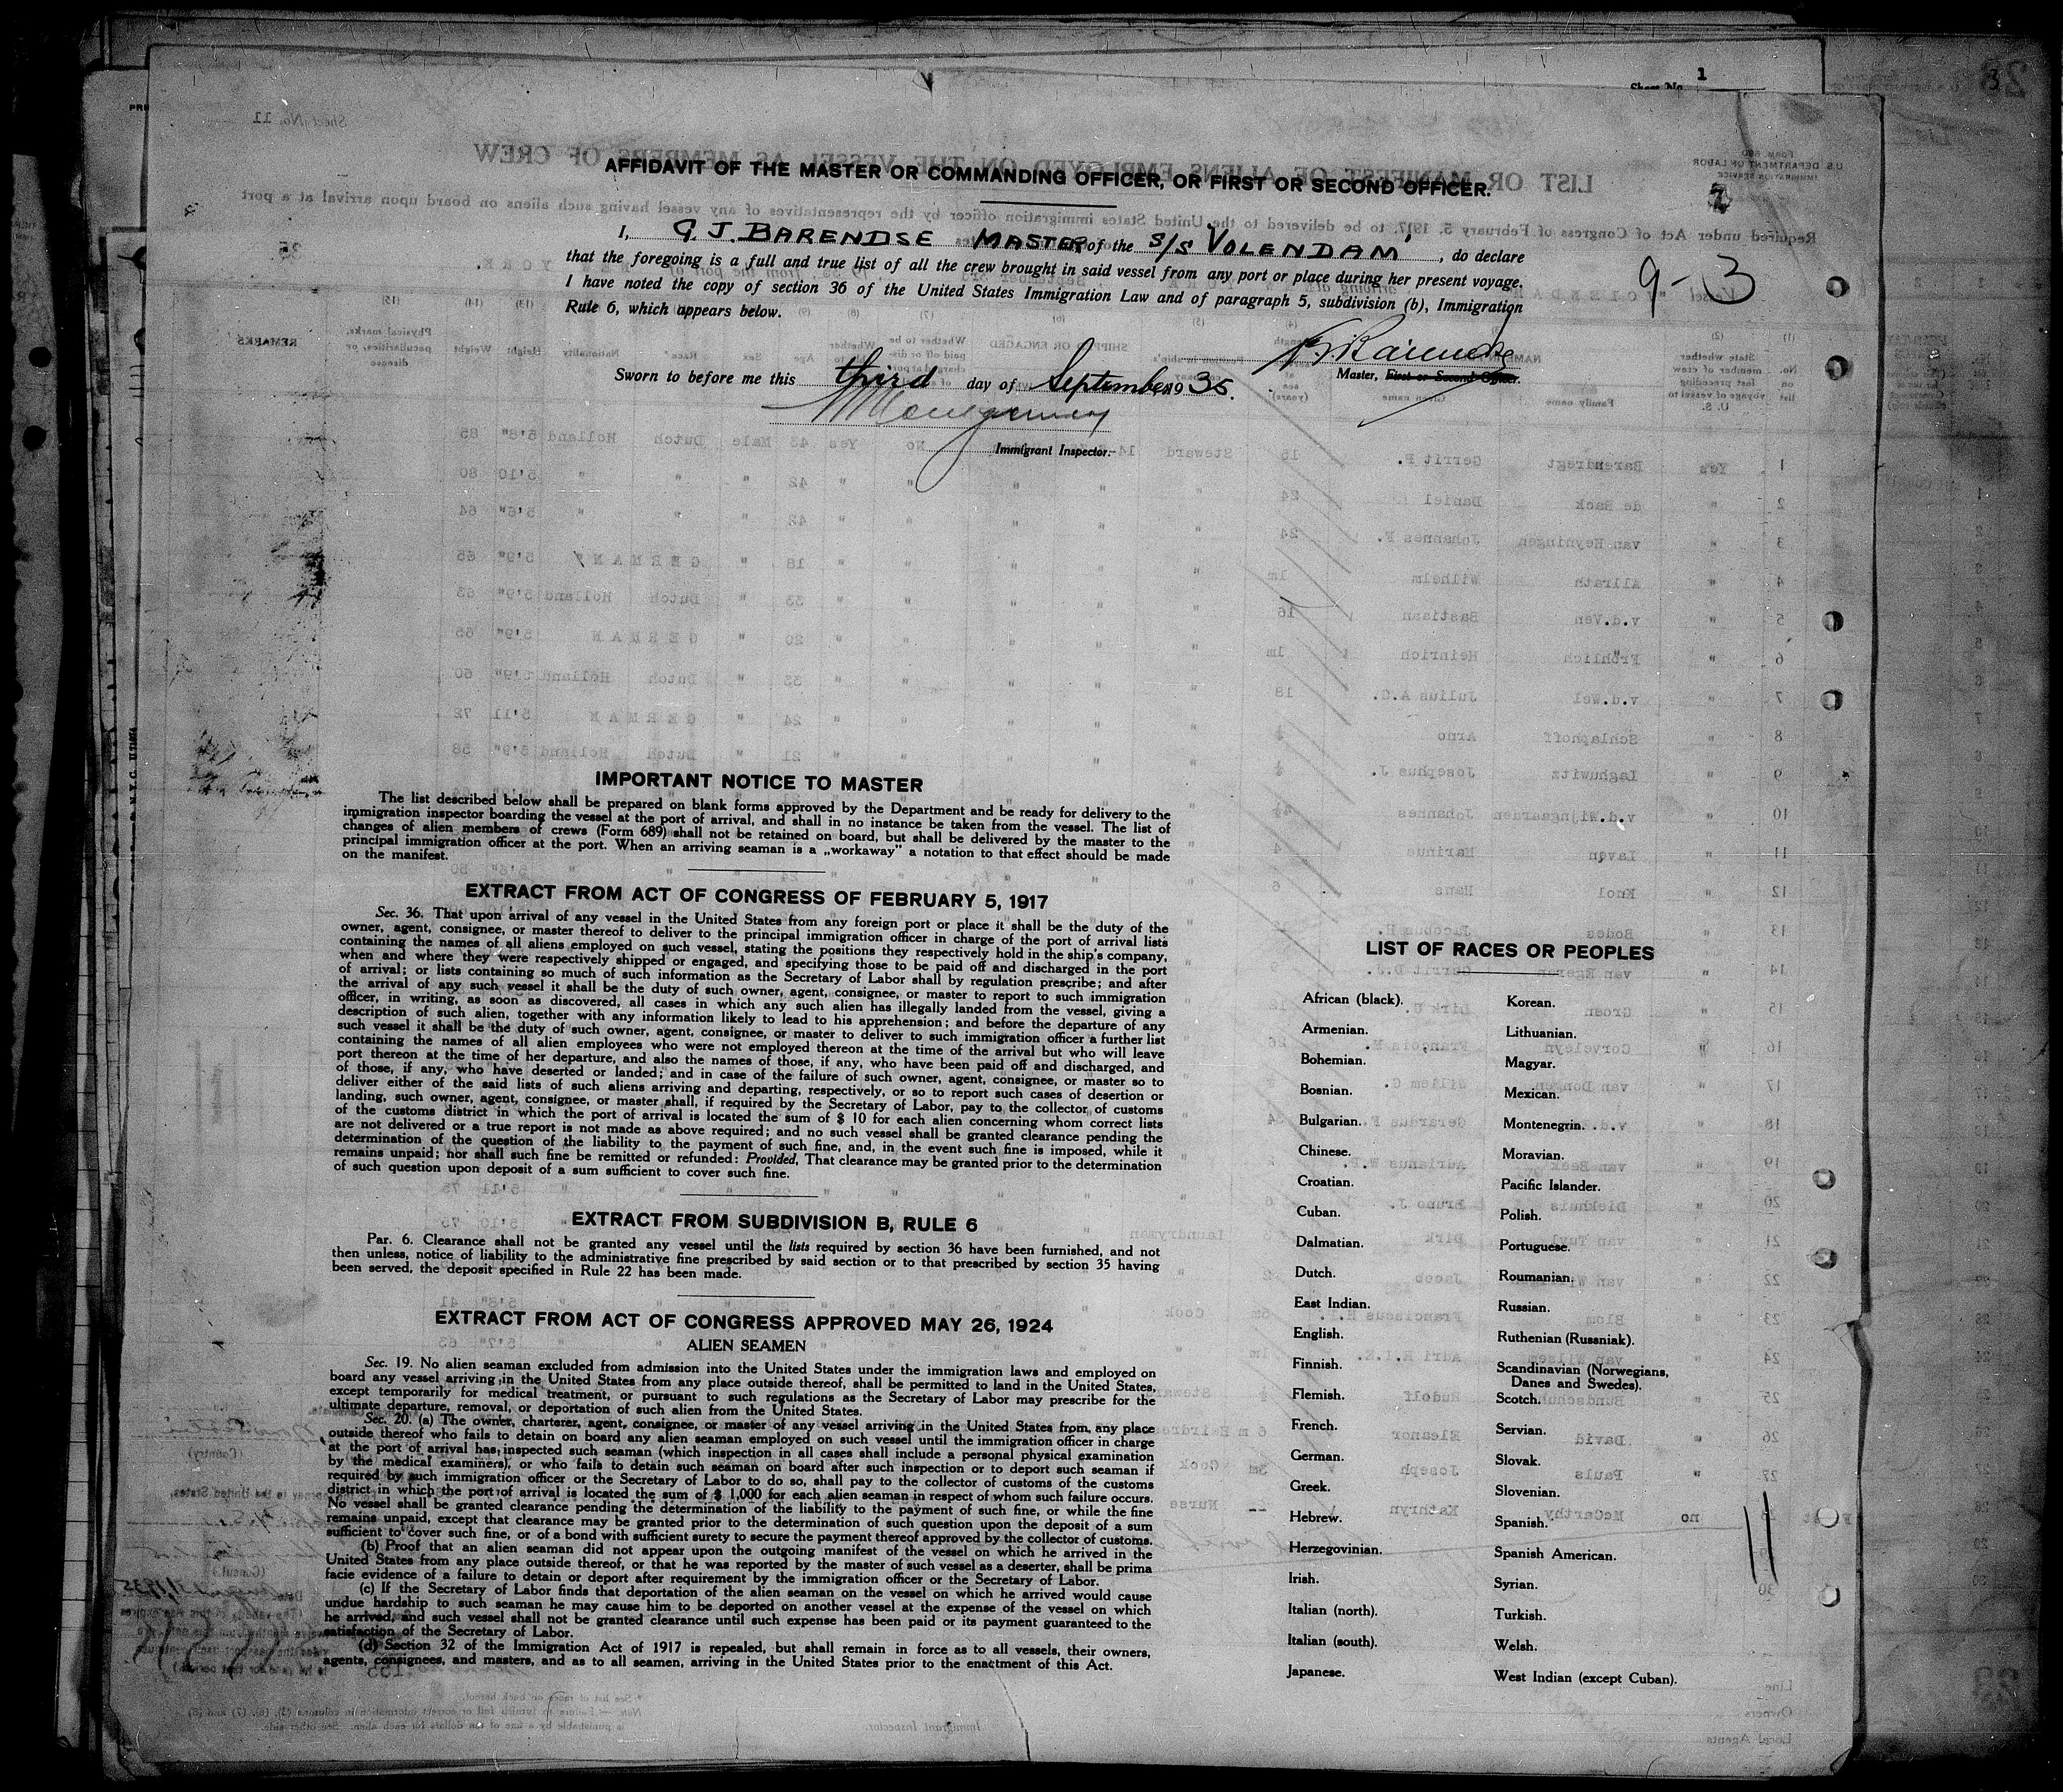 1
Sheet No.
AFFIDAVIT OF THE MASTER OR COMMANDING OFFICER, OR FIRST OR SECOND OFFICER.
I, G. J. BARENDSE MASTER of the S/S VOLENDAM, do declare
that the foregoing is a full and true list of all the crew brought in said vessel from any port or place during her present voyage.
I have noted the copy of section 36 of the United States Immigration Law and of paragraph 5, subdivision (b), Immigration
Rule 6, which appears below.
9-3
Sworn to before me this third day of September 1935.
Master, First or Second Officer.
Immigrant Inspector.
IMPORTANT NOTICE TO MASTER
The list described below shall be prepared on blank forms approved by the Department and be ready for delivery to the
immigration inspector boarding the vessel at the port of arrival, and shall in no instance be taken from the vessel. The list of
changes of alien members of crews (Form 689) shall not be retained on board, but shall be delivered by the master to the
principal immigration officer at the port. When an arriving seaman is a „workaway” a notation to that effect should be made
on the manifest.
EXTRACT FROM ACT OF CONGRESS OF FEBRUARY 5, 1917
Sec. 36. That upon arrival of any vessel in the United States from any foreign port or place it shall be the duty of the
owner, agent, consignee, or master thereof to deliver to the principal immigration officer in charge of the port of arrival lists
containing the names of all aliens employed on such vessel, stating the positions they respectively hold in the ship's company,
when and where they were respectively shipped or engaged, and specifying those to be paid off and discharged in the port
of arrival; or lists containing so much of such information as the Secretary of Labor shall by regulation prescribe; and after
the arrival of any such vessel it shall be the duty of such owner, agent, consignee, or master to report to such immigration
officer, in writing, as soon as discovered, all cases in which any such alien has illegally landed from the vessel, giving a
description of such alien, together with any information likely to lead to his apprehension; and before the departure of any
such vessel it shall be the duty of such owner, agent, consignee, or master to deliver to such immigration officer a further list
containing the names of all alien employees who were not employed thereon at the time of the arrival but who will leave
port thereon at the time of her departure, and also the names of those, if any, who have been paid off and discharged, and
of those, if any, who have deserted or landed; and in case of the failure of such owner, agent, consignee, or master so to
deliver either of the said lists of such aliens arriving and departing, respectively, or so to report such cases of desertion or
landing, such owner, agent, consignee, or master shall, if required by the Secretary of Labor, pay to the collector of customs
of the customs district in which the port of arrival is located the sum of $ 10 for each alien concerning whom correct lists
are not delivered or a true report is not made as above required; and no such vessel shall be granted clearance pending the
determination of the question of the liability to the payment of such fine, and, in the event such fine is imposed, while it
remains unpaid; nor shall such fine be remitted or refunded: Provided, That clearance may be granted prior to the determination
of such question upon deposit of a sum sufficient to cover such fine.
EXTRACT FROM SUBDIVISION B, RULE 6
Par. 6. Clearance shall not be granted any vessel until the lists required by section 36 have been furnished, and not
then unless, notice of liability to the administrative fine prescribed by said section or to that prescribed by section 35 having
been served, the deposit specified in Rule 22 has been made.
EXTRACT FROM ACT OF CONGRESS APPROVED MAY 26, 1924
ALIEN SEAMEN
Sec. 19. No alien seaman excluded from admission into the United States under the immigration laws and employed on
board any vessel arriving in the United States from any place outside thereof, shall be permitted to land in the United States,
except temporarily for medical treatment, or pursuant to such regulations as the Secretary of Labor may prescribe for the
ultimate departure, removal, or deportation of such alien from the United States.
Sec. 20. (a) The owner, charterer, agent, consignee, or master of any vessel arriving in the United States from any place
outside thereof who fails to detain on board any alien seaman employed on such vessel until the immigration officer in charge
at the port of arrival has inspected such seaman (which inspection in all cases shall include a personal physical examination
by the medical examiners), or who fails to detain such seaman on board after such inspection or to deport such seaman if
required by such immigration officer or the Secretary of Labor to do so, shall pay to the collector of customs of the customs
district in which the port of arrival is located the sum of $ 1,000 for each alien seaman in respect of whom such failure occurs.
No vessel shall be granted clearance pending the determination of the liability to the payment of such fine, or while the fine
remains unpaid, except that clearance may be granted prior to the determination of such question upon the deposit of a sum
sufficient to cover such fine, or of a bond with sufficient surety to secure the payment thereof approved by the collector of customs.
(b) Proof that an alien seaman did not appear upon the outgoing manifest of the vessel on which he arrived in the
United States from any place outside thereof, or that he was reported by the master of such vessel as a deserter, shall be prima
facie evidence of a failure to detain or deport after requirement by the immigration officer or the Secretary of Labor.
(c) If the Secretary of Labor finds that deportation of the alien seaman on the vessel on which he arrived would cause
undue hardship to such seaman he may cause him to be deported on another vessel at the expense of the vessel on which
he arrived, and such vessel shall not be granted clearance until such expense has been paid or its payment guaranteed to the
satisfaction of the Secretary of Labor.
(d) Section 32 of the Immigration Act of 1917 is repealed, but shall remain in force as to all vessels, their owners,
agents, consignees, and masters, and as to all seamen, arriving in the United States prior to the enactment of this Act.
LIST OF RACES OR PEOPLES
African (black).
Armenian.
Bohemian.
Bosnian.
Bulgarian.
Chinese.
Croatian.
Cuban.
Dalmatian.
Dutch.
East Indian.
English.
Finnish.
Flemish.
French.
German.
Greek.
Hebrew.
Herzegovinian.
Irish.
Italian (north).
Italian (south).
Japanese.
Korean.
Lithuanian.
Magyar.
Mexican.
Montenegrin.
Moravian.
Pacific Islander.
Polish.
Portuguese.
Roumanian.
Russian.
Ruthenian (Russniak).
Scandinavian (Norwegians,
Danes and Swedes).
Scotch.
Servian.
Slovak.
Slovenian.
Spanish.
Spanish American.
Syrian.
Turkish.
Welsh.
West Indian (except Cuban).
11